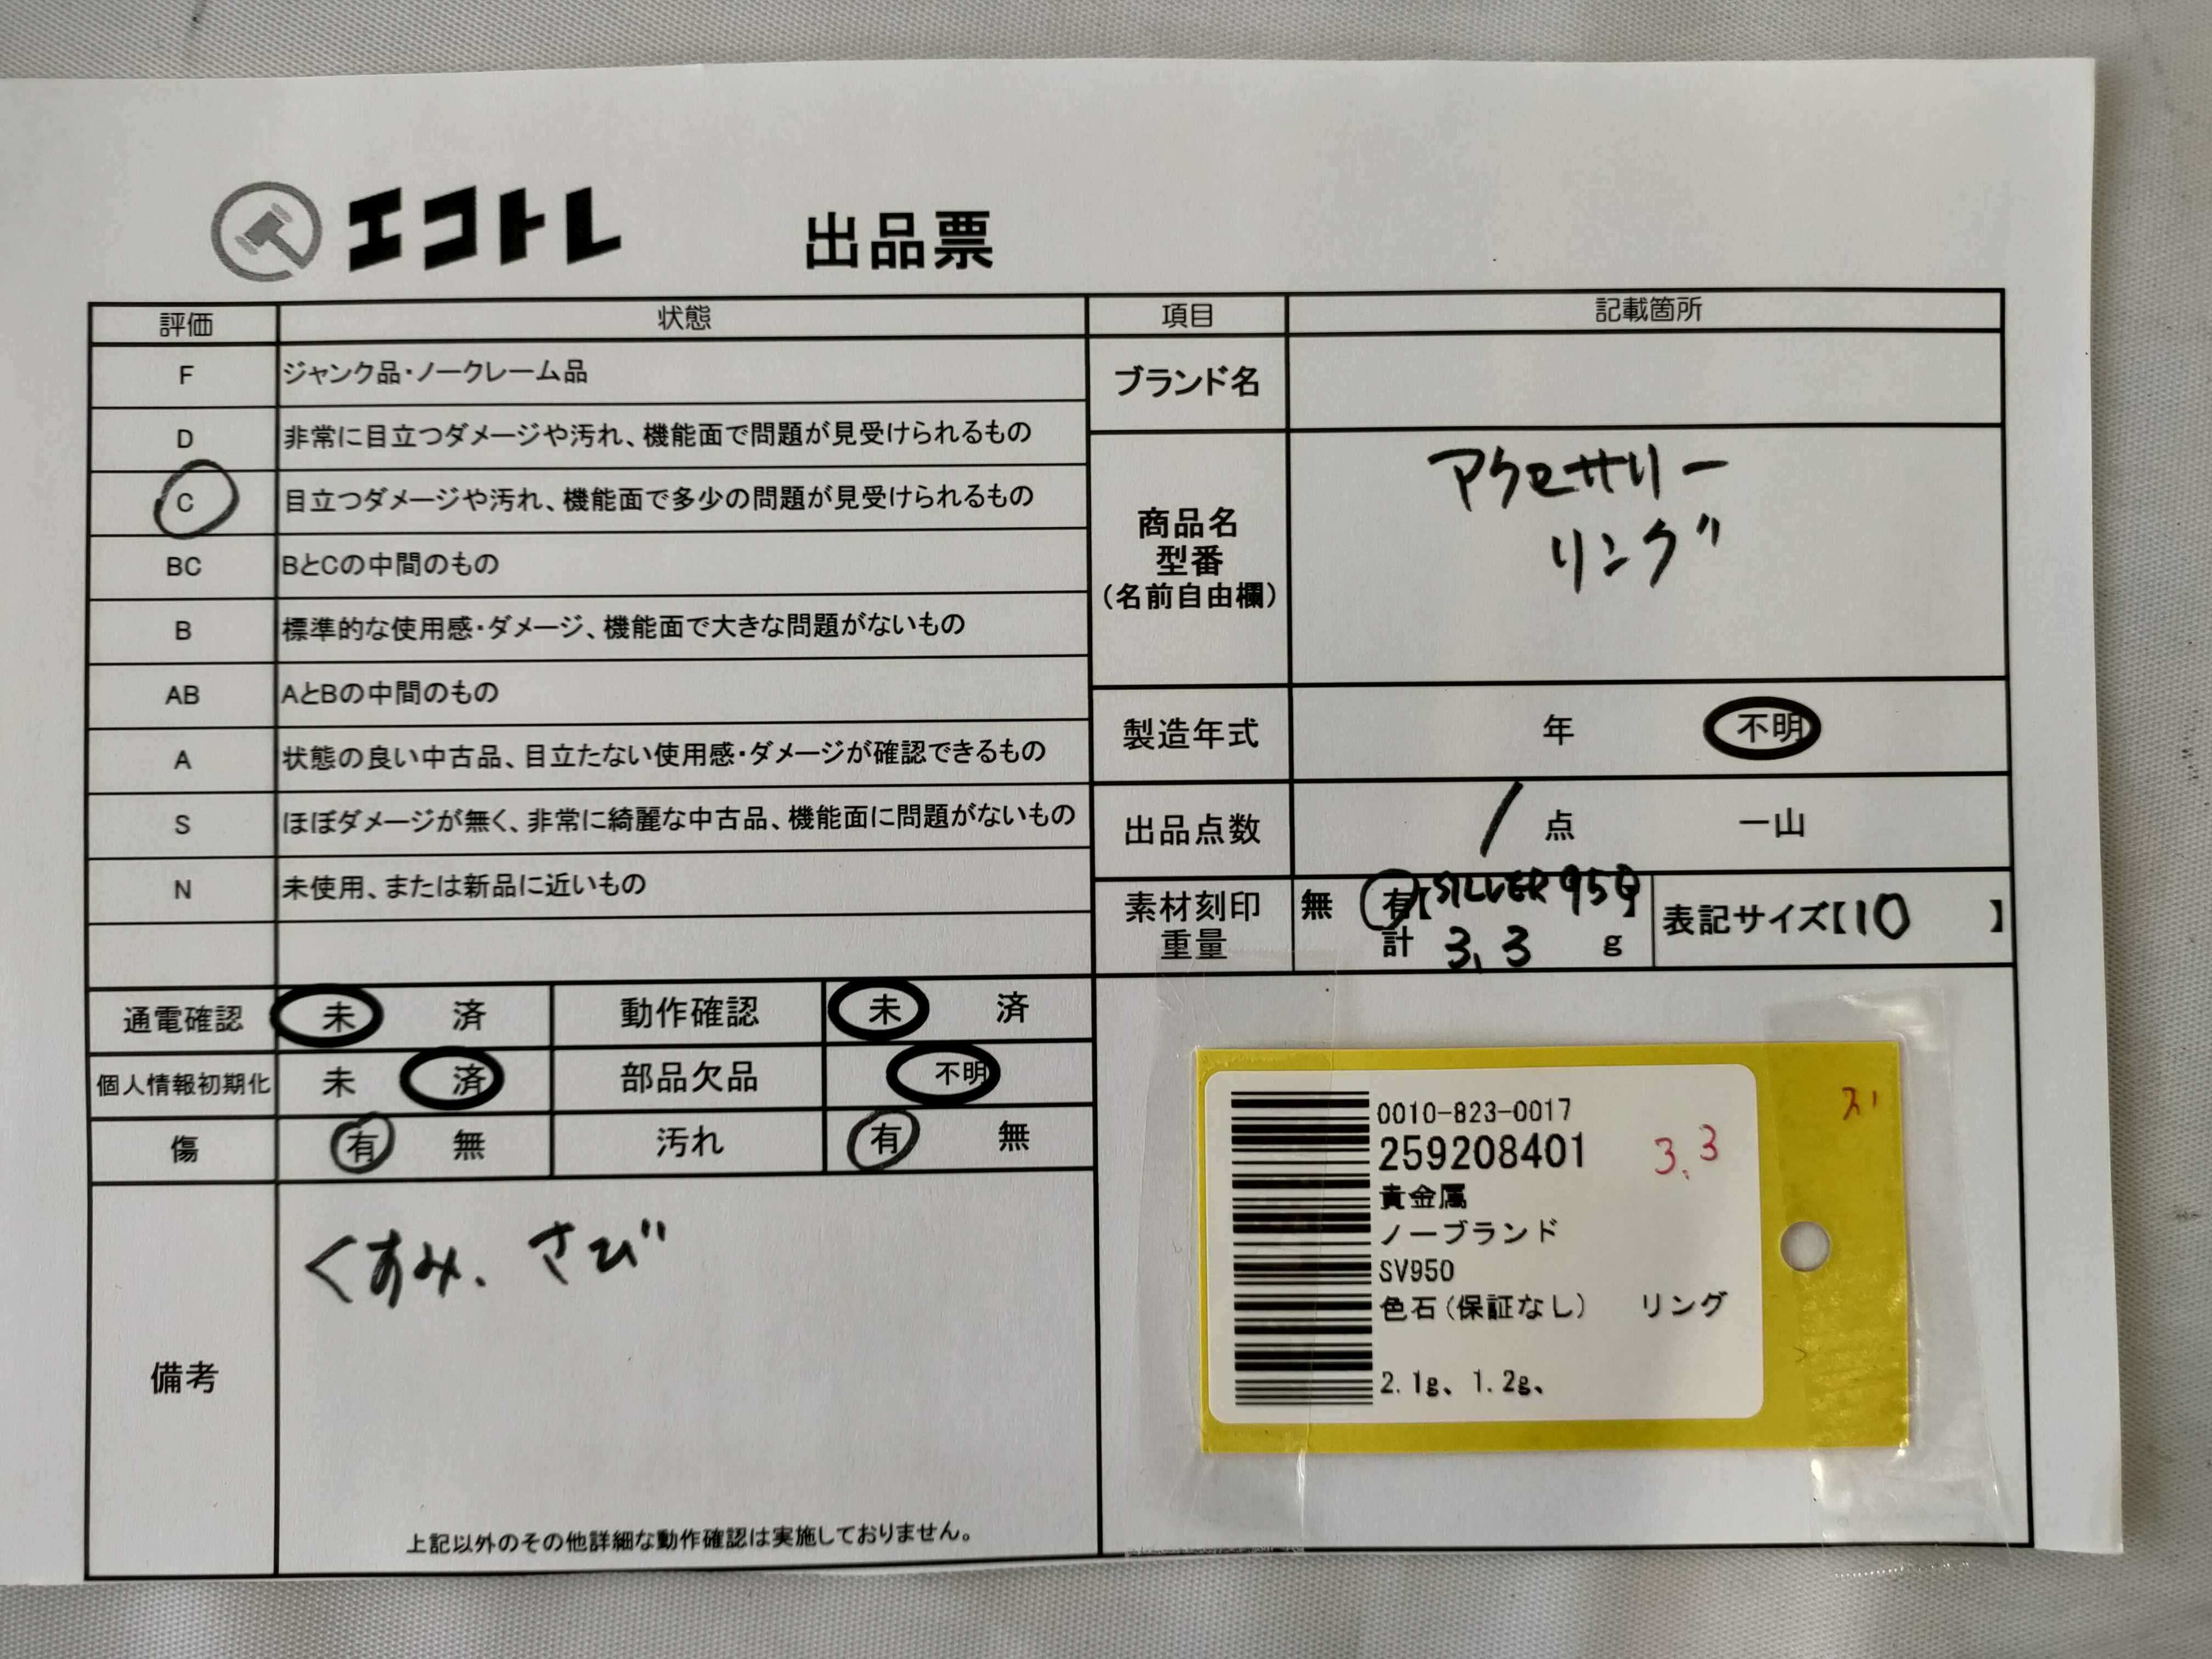 エコトレ 出品票
評価 状態 項目 記載箇所
F ジャンク品・ノークレーム品
D 非常に目立つダメージや汚れ、機能面で問題が見受けられるもの
C 目立つダメージや汚れ、機能面で多少の問題が見受けられるもの
BC BとCの中間のもの
B 標準的な使用感・ダメージ、機能面で大きな問題がないもの
AB AとBの中間のもの
A 状態の良い中古品、目立たない使用感・ダメージが確認できるもの
S ほぼダメージが無く、非常に綺麗な中古品、機能面に問題がないもの
N 未使用、または新品に近いもの
ブランド名
商品名
型番
(名前自由欄)
アクセサリー
リング
製造年式 年 不明
出品点数 1 点 一山
素材刻印 無 有【SILVER 950】
重量 計 3.3 g
表記サイズ【10 】
通電確認 未 済 動作確認 未 済
個人情報初期化 未 済 部品欠品 不明
傷 有 無 汚れ 有 無
備考
くすみ、さび
上記以外のその他詳細な動作確認は実施しておりません。
0010-823-0017
259208401
3.3
貴金属
ノーブランド
SV950
色石(保証なし) リング
2.1g、1.2g、